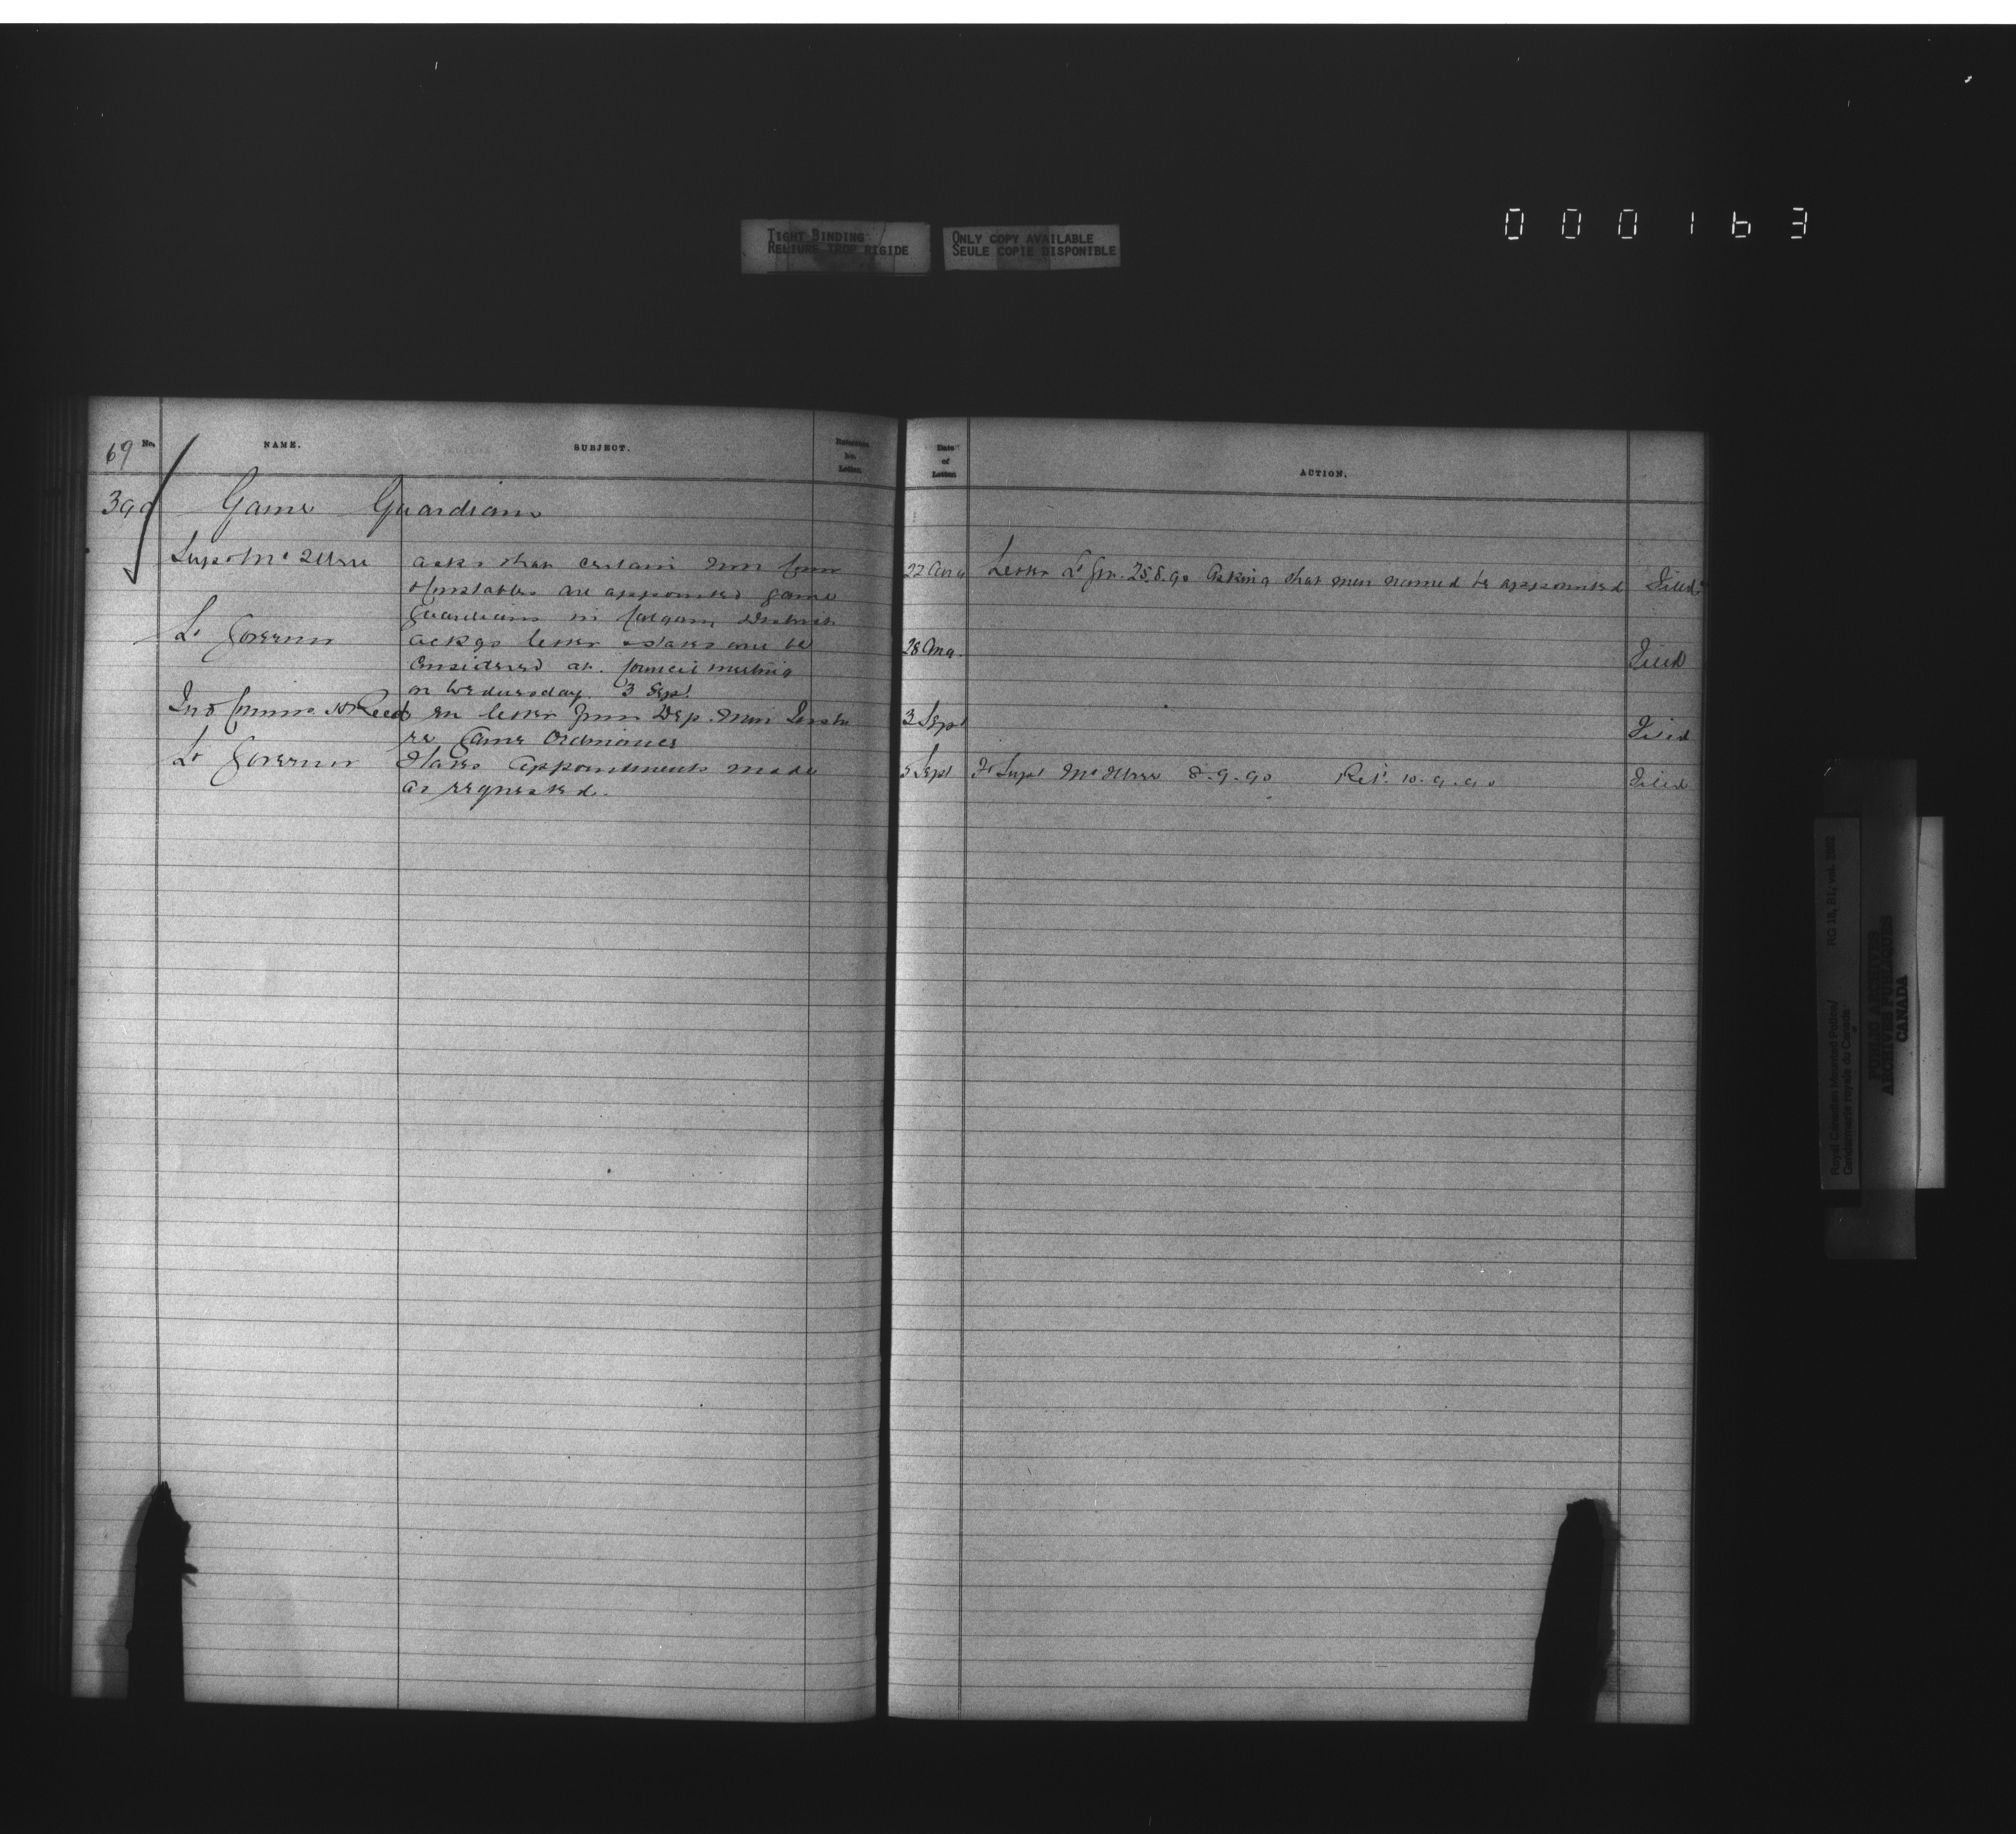 TIGHT BINDING
RELIURE TROP RIGIDE
ONLY COPY AVAILABLE
SEULE COPIE DISPONIBLE
000163
69 No. NAME. SUBJECT. Reference No. Letter.
Date of Letter ACTION.
390 Game Guardians
Supt Mc Illree asks that certain Non Com
& Constables are appointed game
Guardians in Calgary District
22 Aug Letter Lt Gov. 25.8.90 Asking that men named be appointed Filed
Lt Governor ackgs letter states will be
considered at Council meeting
on Wednesday 3 Sept.
28 Aug. Filed
Ind Commr Reed letter from Dep. Min
re Game Ordinances
3 Sept Filed
Lt Governor States Appointments made
as requested.
5 Sept To Supt Mc Illree 8.9.90 Ret. 10.9.90 Filed
Royal Canadian Mounted Police/
Gendarmerie royale du Canada
RG 18, B1, vol.
PUBLIC ARCHIVES
ARCHIVES PUBLIQUES
CANADA